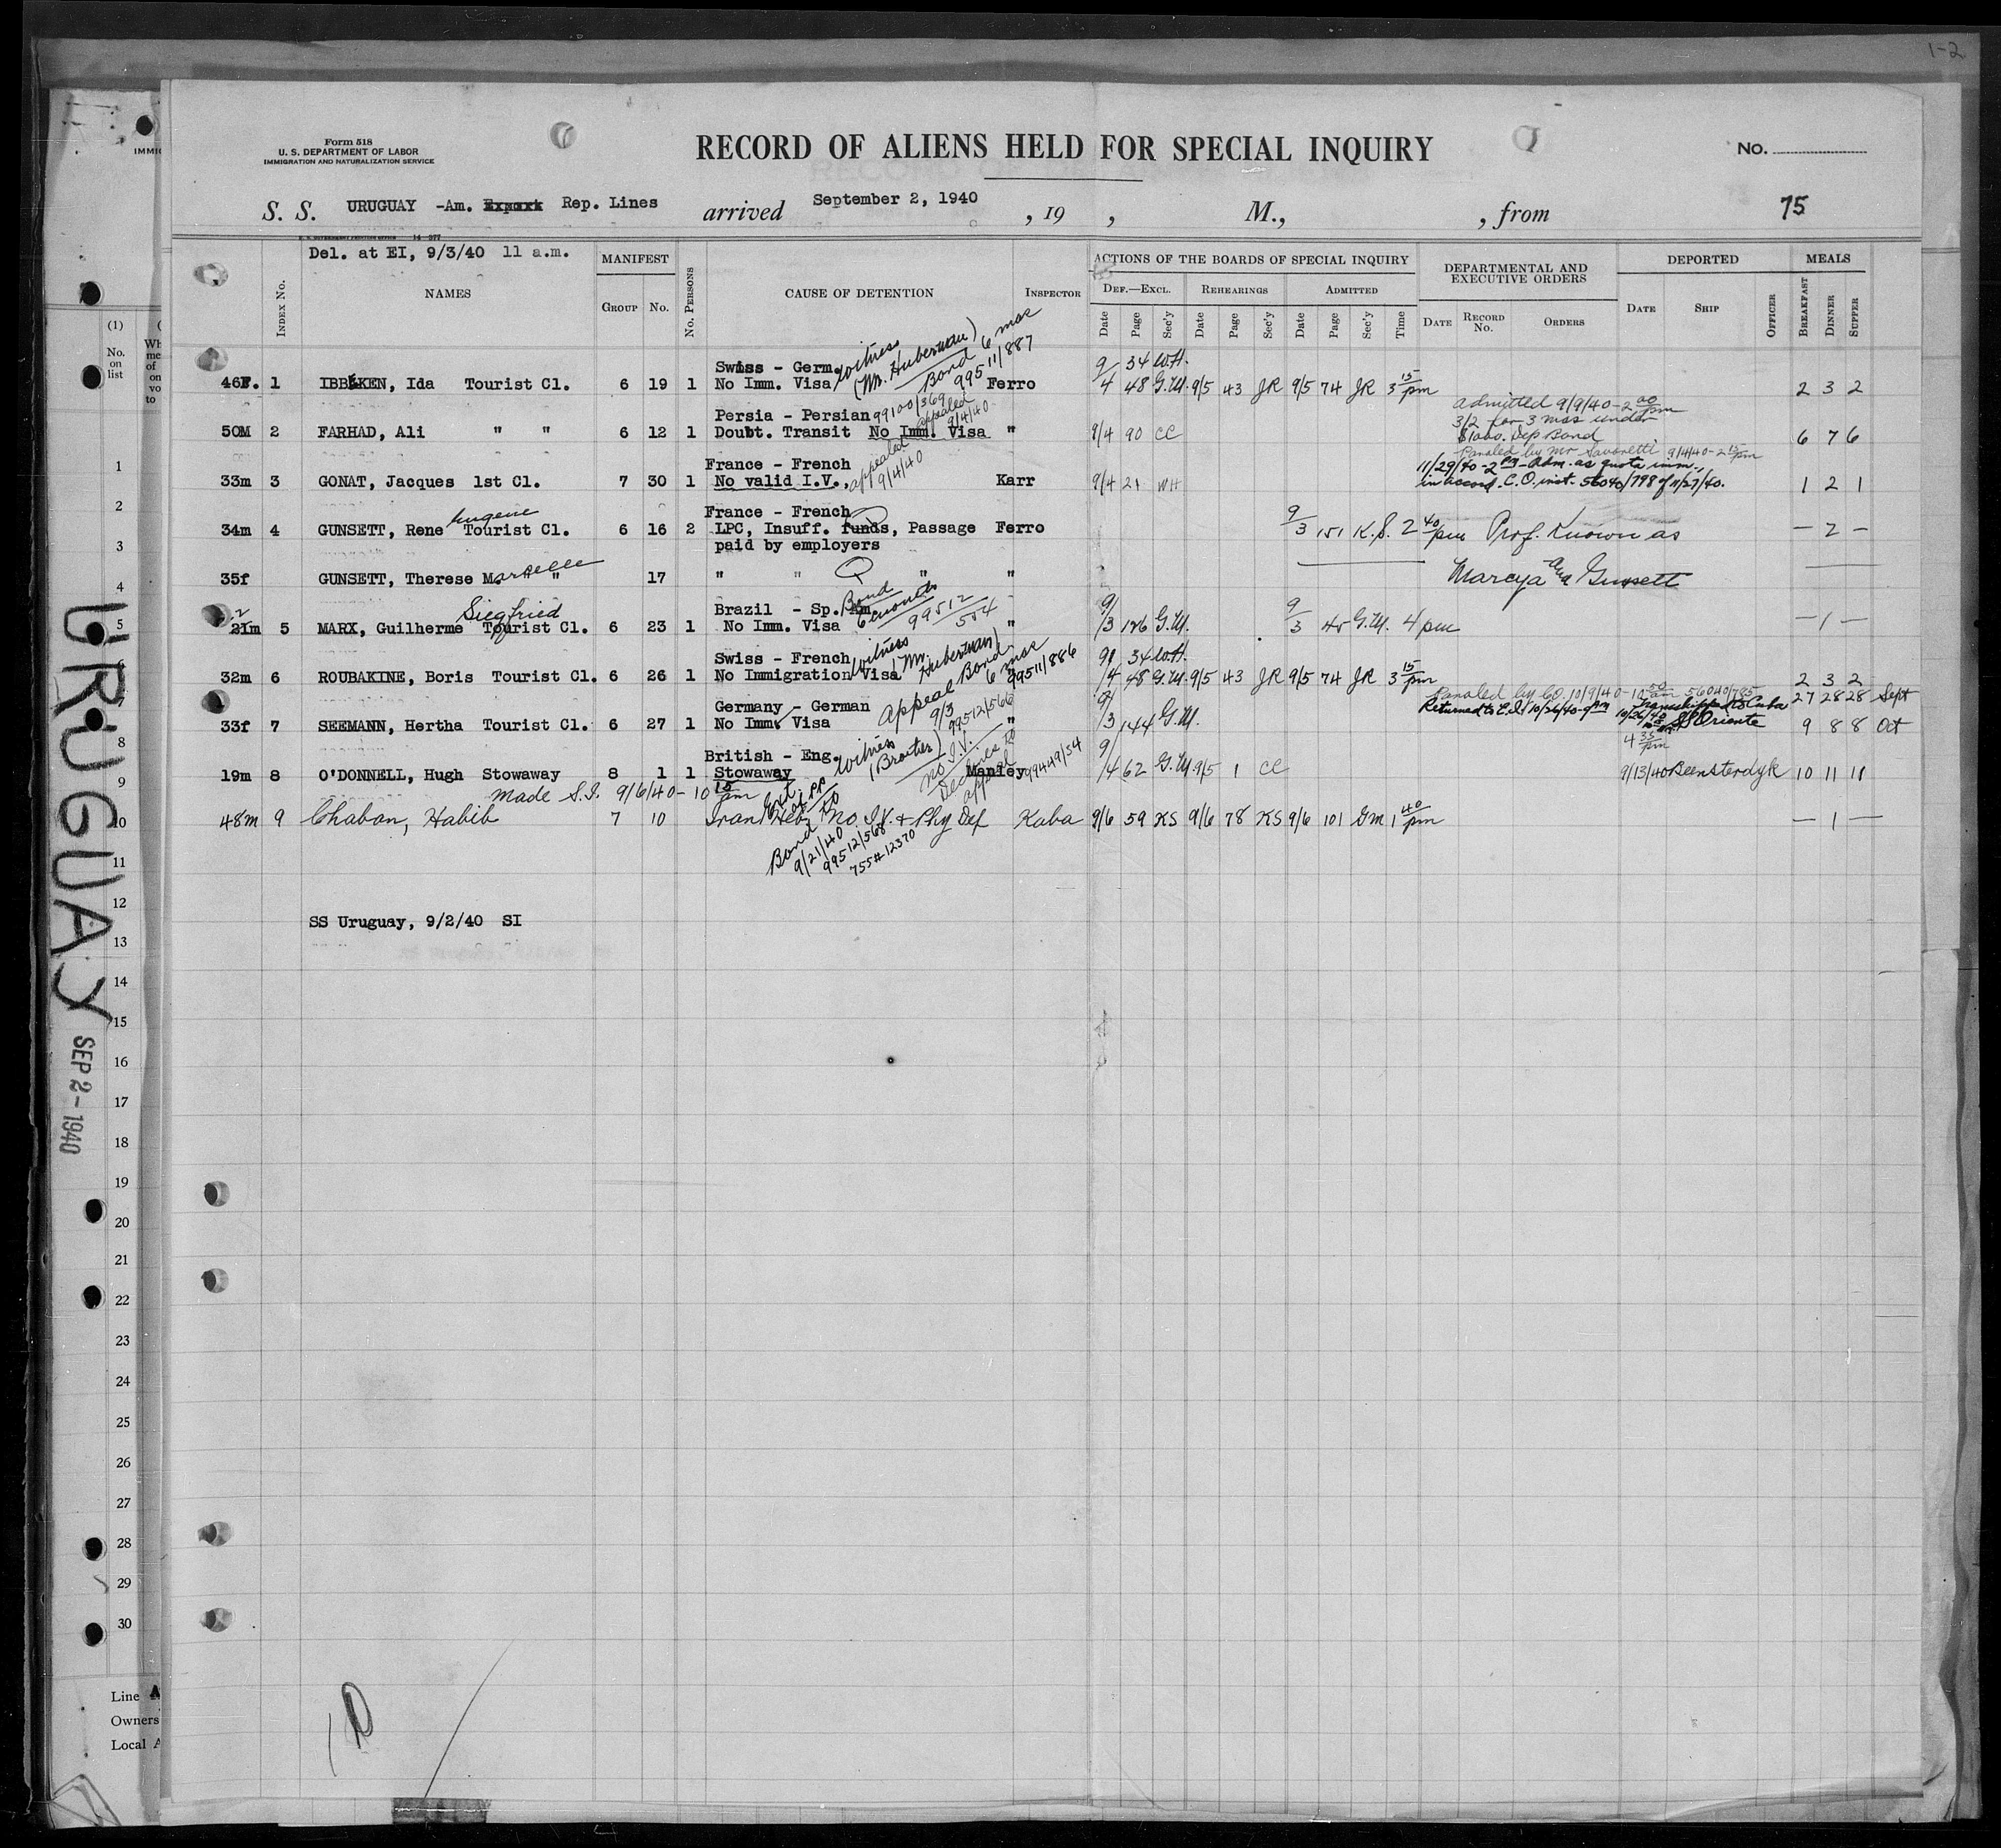 1-2
Form 518
U. S. DEPARTMENT OF LABOR
IMMIGRATION AND NATURALIZATION SERVICE
RECORD OF ALIENS HELD FOR SPECIAL INQUIRY
No.
S. S. URUGUAY -Am. Export Rep. Lines arrived September 2, 1940 , 19 , M., , from 75
Del. at EI, 9/3/40 11 a.m.
INDEX No. NAMES MANIFEST GROUP No. No. PERSONS CAUSE OF DETENTION INSPECTOR
ACTIONS OF THE BOARDS OF SPECIAL INQUIRY
DEF.—EXCL. REHEARINGS ADMITTED
Date Page Sec'y Date Page Sec'y Date Page Sec'y Time
DEPARTMENTAL AND EXECUTIVE ORDERS
DATE RECORD No. ORDERS
DEPORTED
DATE SHIP OFFICER
MEALS
BREAKFAST DINNER SUPPER
Swiss - Germ. Witness (Mr. Huberman) Bond 6 mos 99511/887
46F. 1 IBBEKEN, Ida Tourist Cl. 6 19 1 No Imm. Visa Ferro 9/4 34 W.H. 48 G.M. 9/5 43 JR 9/5 74 JR 3 15 pm 2 3 2
Persia - Persian 99100/369 appealed 9/4/40
50M 2 FARHAD, Ali " " 6 12 1 Doubt. Transit No Imm. Visa " 9/4 90 CC 6 7 6
admitted 9/9/40 - 2 00 pm
3/2 for 3 mos under
$1000. Dep Bond
France - French appealed 9/4/40
33m 3 GONAT, Jacques 1st Cl. 7 30 1 No valid I.V., Karr 9/4 21 WH 1 2 1
Paroled by Mr Savoretti 9/4/40 - 2 15 pm
11/29/40 - 2 pm - Adm. as quota imm.,
in accord. C.O. inst. 56040/798 of 11/27/40.
France - French
34m 4 GUNSETT, Rene Eugene Tourist Cl. 6 16 2 LPC, Insuff. funds, Passage Ferro 9/3 151 K.S. 2 40 pm Prof. Known as — 2 —
paid by employers
35f GUNSETT, Therese Marcelle " 17 " " " " Marcya and Gunsett
Brazil - Sp. Am. Bond 6 months 99512/554
22 21m 5 MARX, Guilherme Siegfried Tourist Cl. 6 23 1 No Imm. Visa " 9/3 126 G.M. 9/3 45 G.M. 4 pm — 1 —
Swiss - French Witness (Mr. Huberman) Bond 6 mos 99511/886
32m 6 ROUBAKINE, Boris Tourist Cl. 6 26 1 No Immigration Visa " 9/4 34 W.H. 48 G.M. 9/5 43 JR 9/5 74 JR 3 15 pm 2 3 2
Germany - German Appeal 9/3 99512/566
33f 7 SEEMANN, Hertha Tourist Cl. 6 27 1 No Imm. Visa " 9/3 144 G.M. 27 28 28 Sept
9 8 8 Oct
Paroled by CO. 10/9/40 - 10 50 am 56040/785
Returned to E.I. 10/26/40 - 9 am
10/26/40 Transhipped to Cuba
SS Oriente
4 35 pm
British - Eng. Witness (Brouter) no I.V. Declines to appeal
19m 8 O'DONNELL, Hugh Stowaway 8 1 1 Stowaway Manley 99449/54 9/4 62 G.M. 9/5 1 CC 9/13/40 Beensterdyk 10 11 11
Made S.I. 9/6/40 - 10 15 am
48m 9 Chaban, Habib 7 10 Iran Heb. No I.V. + Phy Def Kaba 9/6 59 KS 9/6 78 KS 9/6 101 GM 1 40 pm — 1 —
Bond to
9/21/40
99512/568
755#12370
SS Uruguay, 9/2/40 SI
URUGUAY
SEP 2 - 1940
IMMIG
(1)
No. on list
1
2
3
4
5
8
9
10
11
12
13
14
15
16
17
18
19
20
21
22
23
24
25
26
27
28
29
30
Line A
Owners
Local A